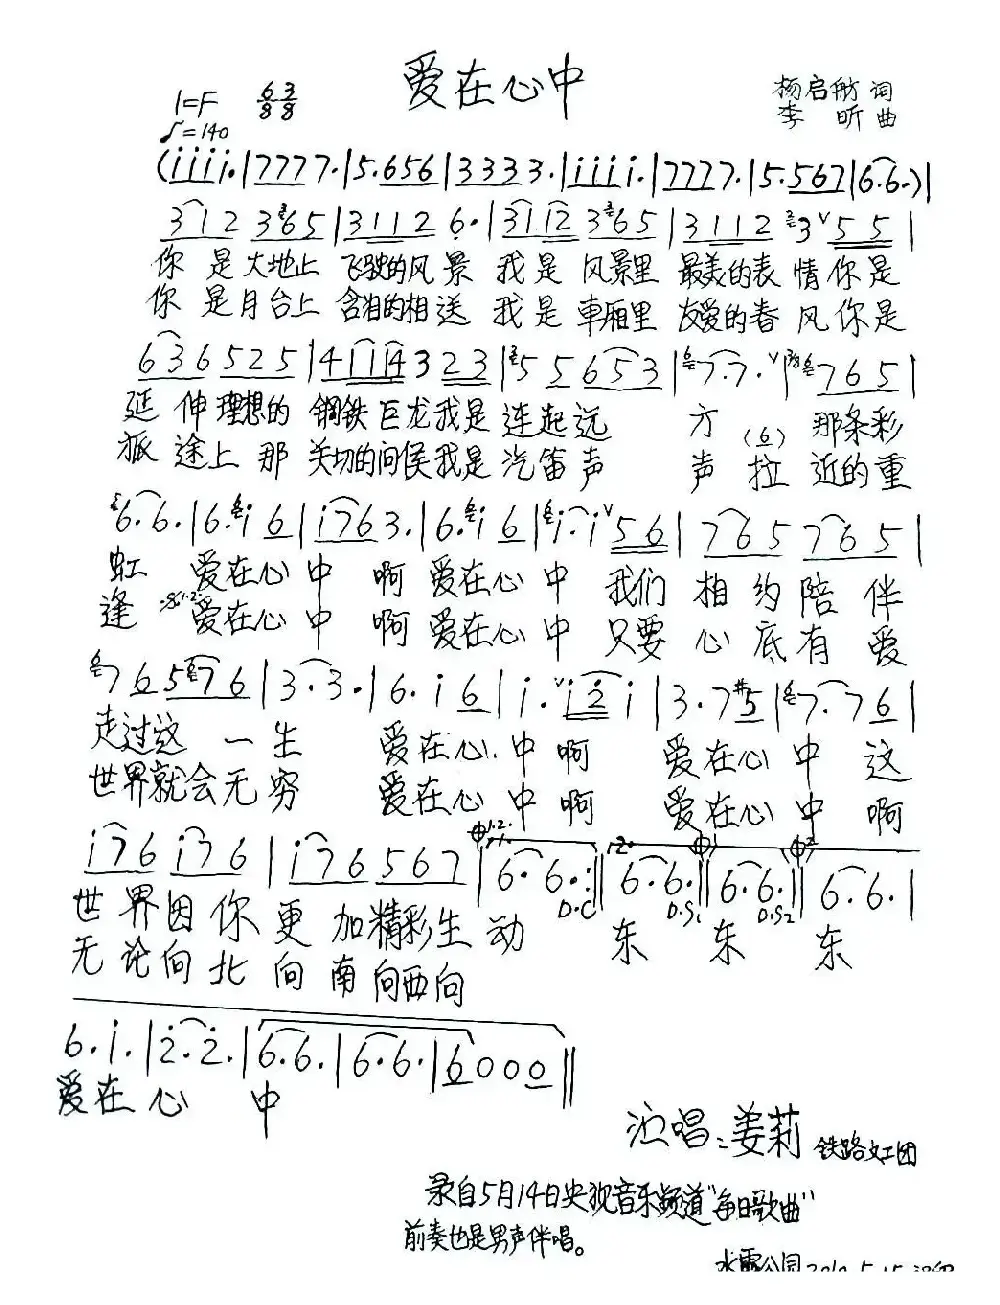 爱在心中
1=F 6/8 3/8
♪=140
杨启舫 词
李昕 曲
(i i i i. | 7 7 7 7. | 5. 6 5 6 | 3 3 3 3. | i i i i. | 7 7 7 7. | 5. 5 6 7 | 6. 6. ) |
3 1 2 3 6 5 | 3 1 1 2 6. | 3 1 1 2 3 6 5 | 3 1 1 2 3 5 5 |
你是大地上飞驶的风景我是风景里最美的表情你是
你是月台上含泪的相送我是车厢里友爱的春风你是
6 3 6 5 2 5 | 4 1 1 4 3 2 3 | 5 5 6 5 3 | 7. 7. | 7 6 5 |
延伸理想的钢铁巨龙我是连起远方那条彩
旅途上那关切的问侯我是汽笛声声(6)拉近的重
6. 6. | 6. i 6 | i 7 6 3. | 6. i 6 | i. i 5 6 | 7 6 5 7 6 5 |
虹爱在心中啊爱在心中我们相约陪伴
逢爱在心中啊爱在心中只要心底有爱
7 6 5 7 6 | 3. 3. | 6. i 6 | i. i 2 i | 3. 7 #5 | 7. 7 6 |
走过这一生爱在心中啊爱在心中这
世界就会无穷爱在心中啊爱在心中啊
i 7 6 i 7 6 | i 7 6 5 6 7 | 6. 6. :|| 6. 6. || 6. 6. || 6. 6. |
D.C D.S1 D.S2
世界因你更加精彩生动东东东
无论向北向南向西向
6. i. | 2. 2. | 6. 6. | 6. 6. | 6 0 0 0 ||
爱在心中
演唱:姜莉 铁路文工团
录自5月14日央视音乐频道"每日歌曲"
前奏也是男声伴唱。